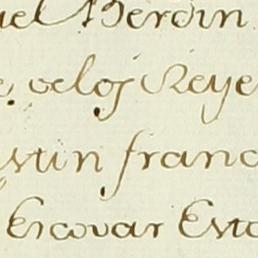 uel Berdin
e, oelos Reye
stin franc
Escovar Esto